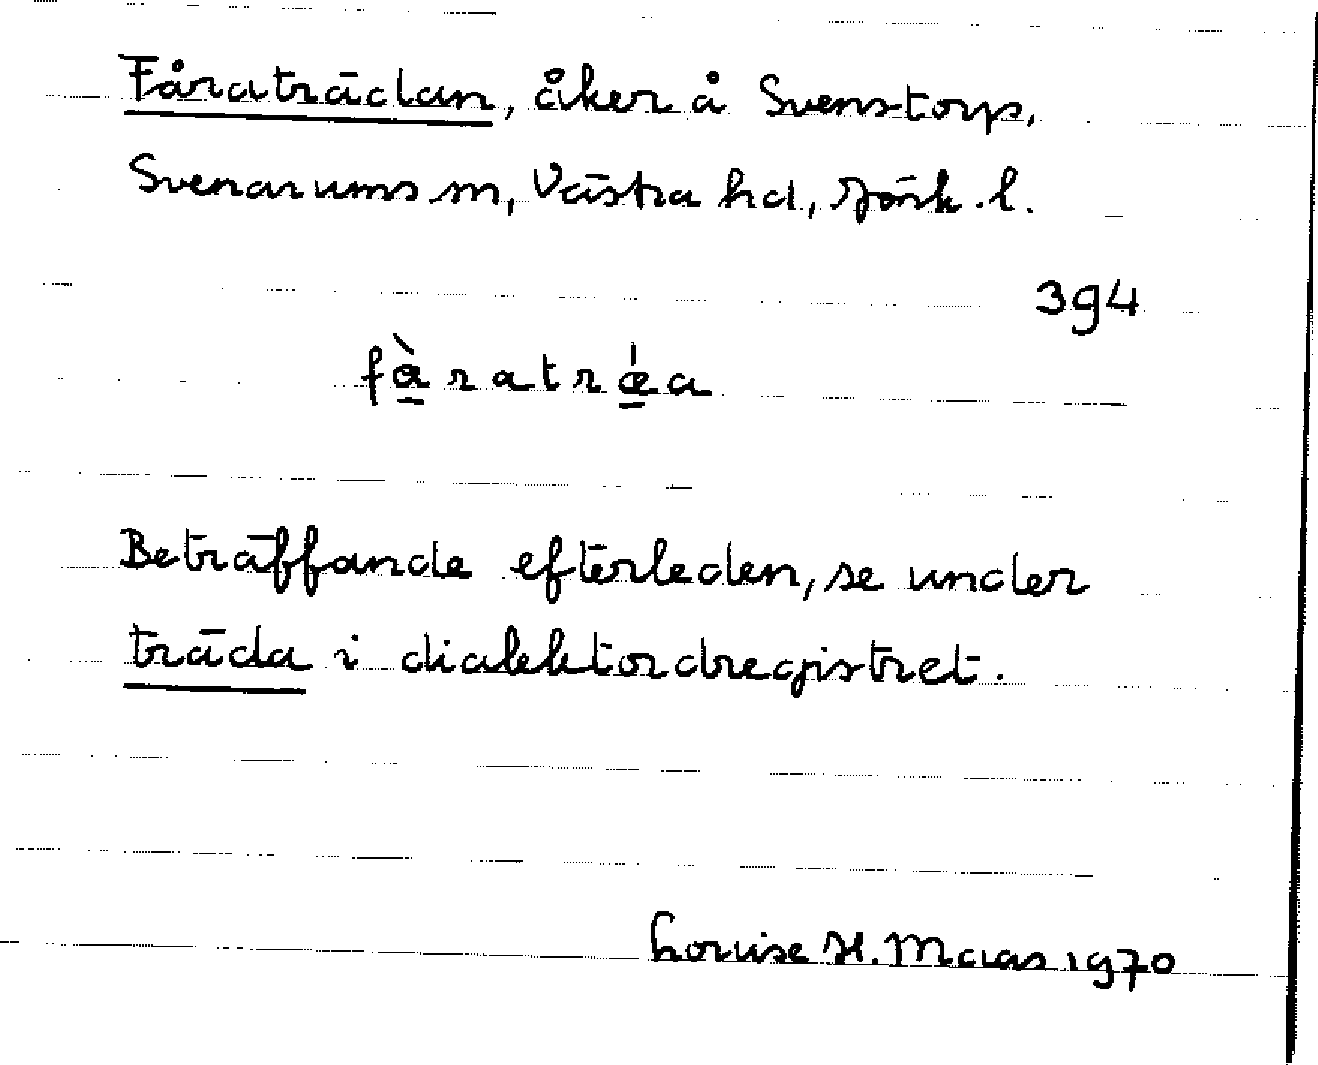 Fåraträdan, åker å Svenstorp,
Svenarums sn, Västra hd, Jönk. l.
394
fàratrǽa
Beträffande efterleden, se under
träda i dialektordregistret.
Louise H. Maas 1970